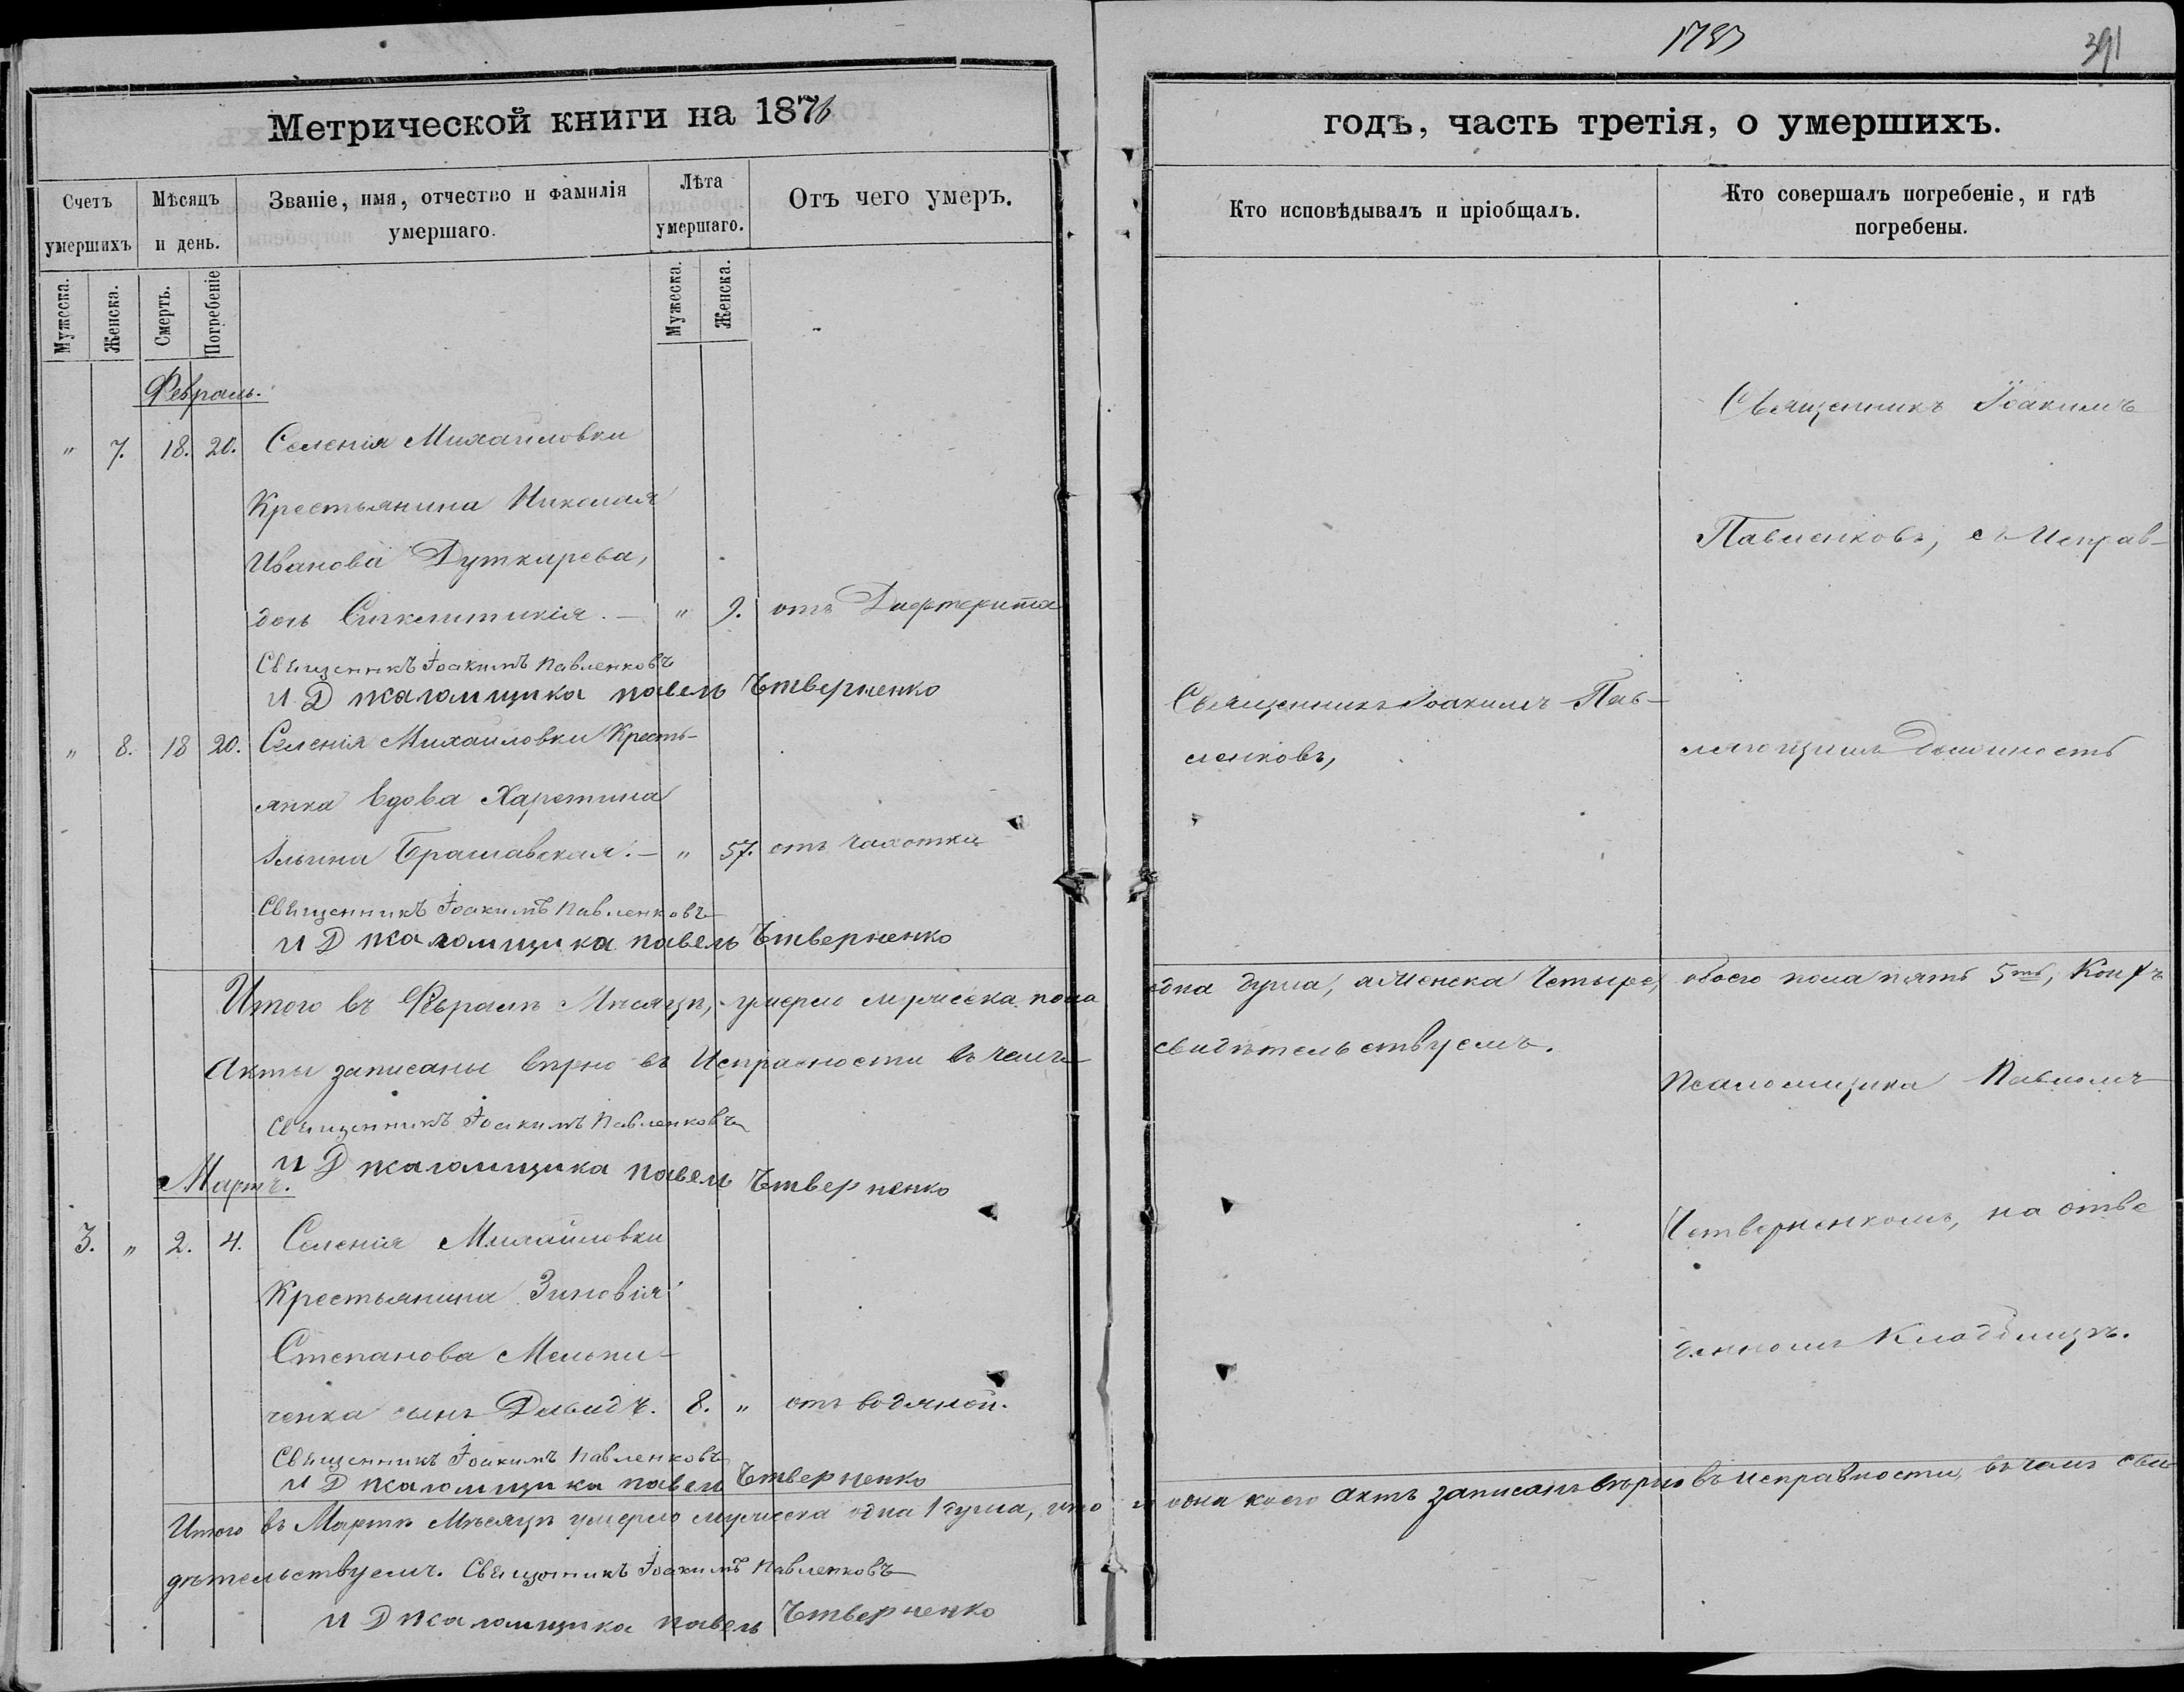 391
Метрической книги на 1876
годъ, часть третія, о умершихъ.
Счетъ умершихъ
Мѣсяцъ и день.
Званіе, имя, отчество и фамилія умершаго.
Лѣта умершаго.
Отъ чего умеръ.
Кто исповѣдывалъ и пріобщалъ.
Кто совершалъ погребеніе, и гдѣ погребены.
Мужеска.
Женска.
Смерть.
Погребеніе
Мужеска.
Женска.
Февраль.
" 7. 18. 20. Селенія Михайловки
Крестьянина Николая
Иванова Дуткарева,
дочь Синклитикія. — " 9. отъ Дифтерита
Священникъ Іоакимъ Павленковъ
И Д псаломщика павелъ Чтверненко
" 8. 18 20. Селенія Михайловки Кресть-
янка вдова Харетина
Ильина Браславская. — " 57. отъ чахотки
Священникъ Іоакимъ Павленковъ
И Д псаломщика павелъ Чтверненко
Священникъ Іоакимъ Пав-
ленковъ,
Священникъ Іоакимъ
Павленковъ, съ Исправ-
ляющимъ Должность
Итого въ Февралѣ Мѣсяцѣ, умерло мужеска пола
одна душа, а Женска Четыре, обоего пола пять 5ть, Коихъ
Акты записаны вѣрно въ Исправности въ чемъ
свидѣтельствуемъ.
Священникъ Іоакимъ Павленковъ
И Д псаломщика павелъ Чтверненко
Псаломщика Павломъ
Четверненкомъ, на отве
денномъ Кладбищѣ.
Мартъ.
3. " 2. 4. Селенія Михайловки
Крестьянина Зиновія
Степанова Мельни-
ченка сынъ Давидъ. 8. " отъ водяной.
Священникъ Іоакимъ Павленковъ
И Д псаломщика павелъ Чтверненко
Итого въ Мартѣ Мѣсяцѣ умерло мужеска одна 1 душа,
одна коего Актъ записанъ вѣрно въ исправности, въ чемъ сви
дѣтельствуемъ. Священникъ Іоакимъ Павленковъ
И Д псаломщика павелъ Чтверненко